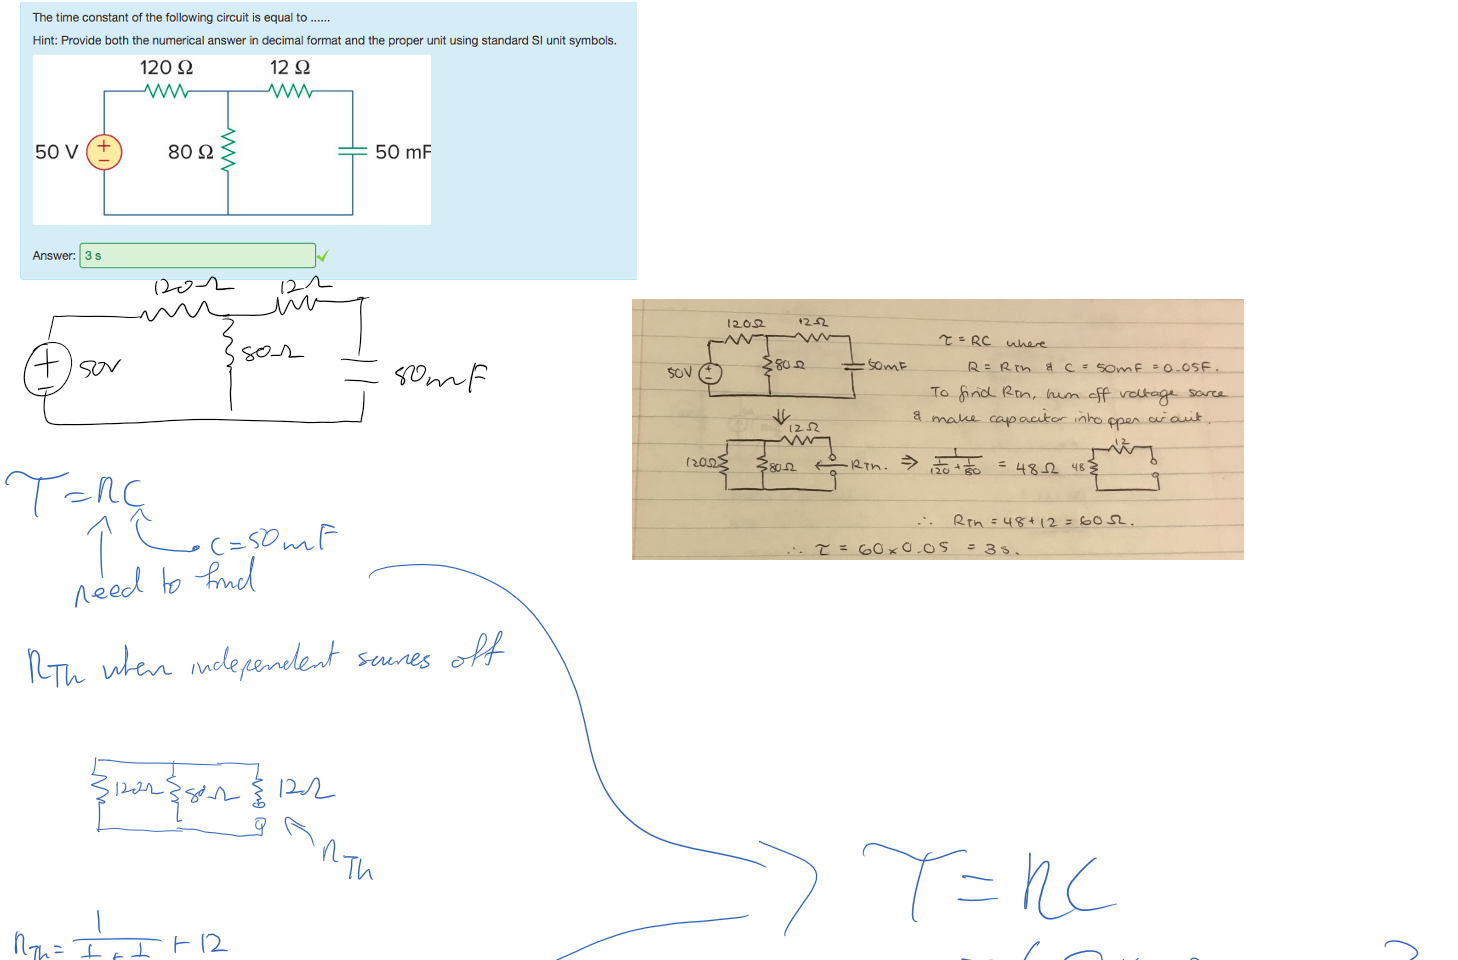 The time constant of the following circuit is equal to ......
Hint: Provide both the numerical answer in decimal format and the proper unit using standard SI unit symbols.
120 Ω 12 Ω
50 V 80 Ω 50 mF
Answer: 3 s
120Ω 12Ω
50V 80Ω 50mF
τ = RC
C = 50mF
need to find
RTh when independent sources off
120Ω 80Ω 12Ω
RTh
RTh = 1 + 12
120Ω 12Ω
50V 80Ω 50mF
τ = RC where
R = RTh & C = 50mF = 0.05F.
To find RTh, turn off voltage source
& make capacitor into open circuit.
12Ω
120Ω 80Ω RTh. ⇒ 1/(1/120 + 1/80) = 48Ω 48 12
∴ RTh = 48 + 12 = 60Ω.
∴ τ = 60 x 0.05 = 3s.
τ = RC